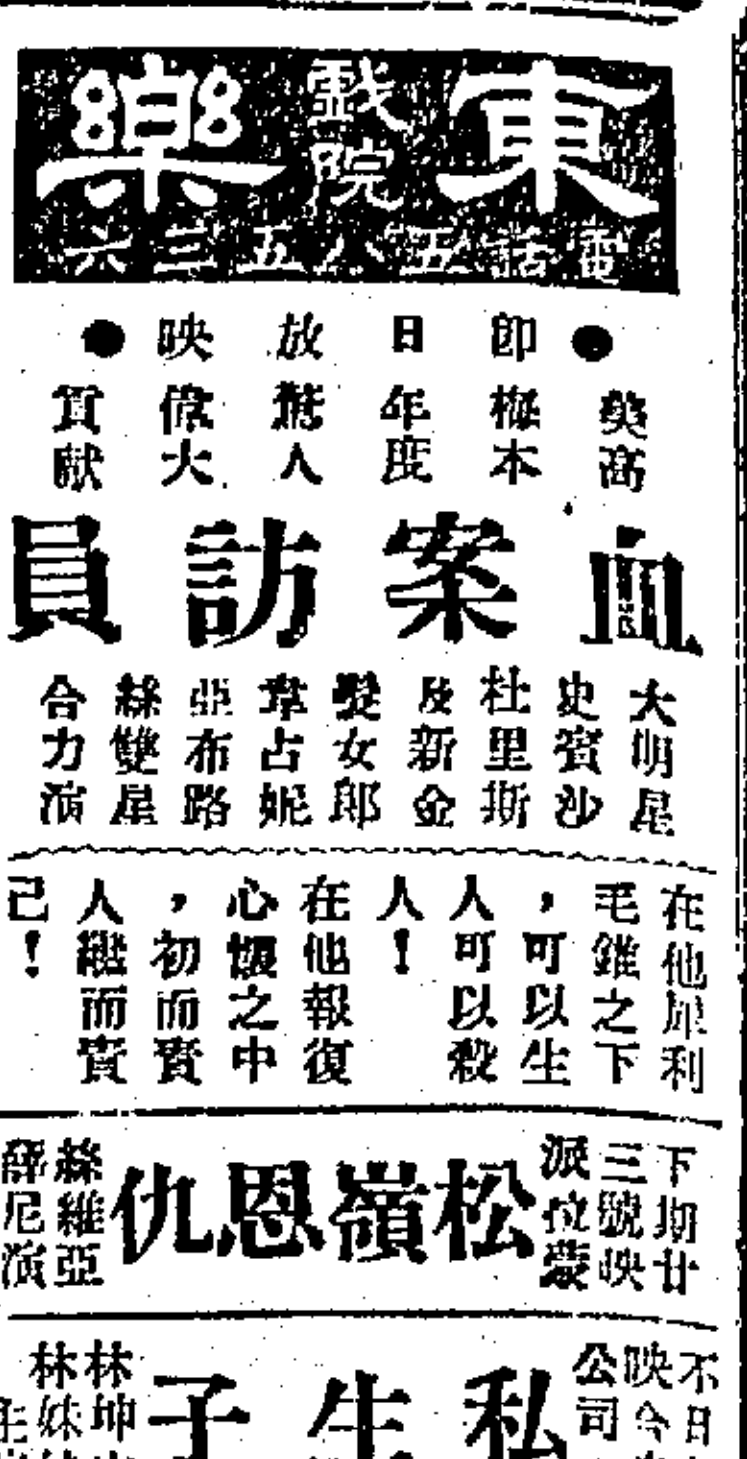 東樂
戲院
電話五八五三六
●即日放映●
英高
梅本
年度
驚人
偉大
貢献
血案訪員
大明星
史賓沙
杜里斯
及新金
髮女郎
韋占妮
亞布路
絲雙星
合力演
在他犀利
毛錐之下
，可以生
人可以殺
人！
在他報復
心懷之中
，初而賣
人繼而賣
己！
下期廿
三號映
派拉蒙
松嶺恩仇
絲維亞
薛尼演
不日
映今
公司
私生子
林坤
林妹